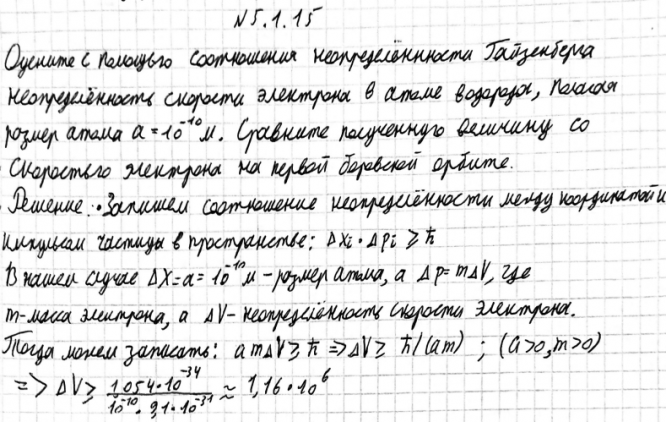 №5.1.15
Оцените с помощью соотношения неопределённности Гайзенберга
неопределённость скорости электрона в атоме водорода, полагая
размер атома a = 10⁻¹⁰ м. Сравните полученную величину со
скоростью электрона на первой боровской орбите.
Решение: • Запишем соотношение неопределённости между координатой и
импульсом частицы в пространстве: Δxi · Δpi ≥ ħ
В нашем случае Δx = a = 10⁻¹⁰ м - размер атома, а Δp = mΔV, где
m - масса электрона, а ΔV - неопределённость скорости электрона.
Тогда можем записать: a m ΔV ≥ ħ => ΔV ≥ ħ/(am) ; (a>0, m>0)
=> ΔV ≥ 1054·10⁻³⁴ / 10⁻¹⁰ · 9,1·10⁻³¹ ≈ 1,16·10⁶